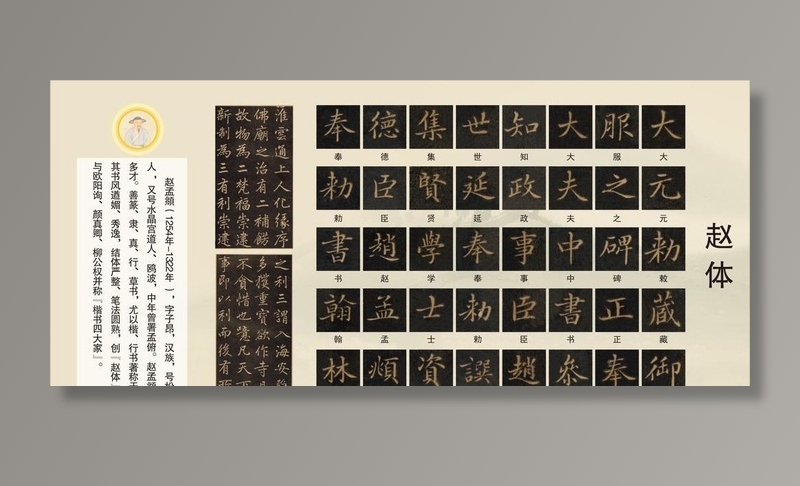 赵体
大元勅藏御
大元敕藏
服之碑正奉
服之碑正
大夫中書參
大夫中书
知政事臣趙
知政事臣
世延奉勅撰
世延奉勅
集賢學士資
集贤学士
德臣趙孟頫
德臣赵孟
奉勅書翰林
奉勅书翰
淮雲道上人化緣序
佛廟之治有二補
故物為二梵福崇
新制為三有利崇建
之利三謂入海安
多獲重寶欲作寺
不貪惜也意凡天
事即以利而後有
赵孟頫（1254年-1322年），字子昂，汉族，号松
人，又号水晶宫道人、鸥波，中年曾署孟俯。赵孟頫
多才。善篆、隶、真、行、草书，尤以楷、行书著称于
其书风遒媚、秀逸，结体严整、笔法圆熟，创『赵体
与欧阳询、颜真卿、柳公权并称『楷书四大家』。